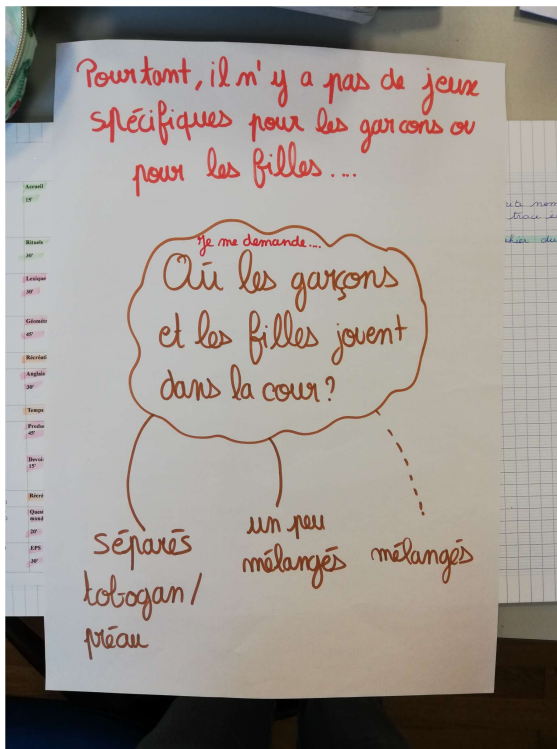 Pourtant, il n'y a pas de jeux
spécifiques pour les garcons ou
pour les filles....
Je me demande....
Où les garçons
et les filles jouent
dans la cour?
séparés
tobogan/
préau
un peu
mélangés
mélangés
Accueil
15'
Rituels
30'
Lexique
30'
45'
Anglais
30'
Temps
45'
15'
Récré
20'
EPS
30'